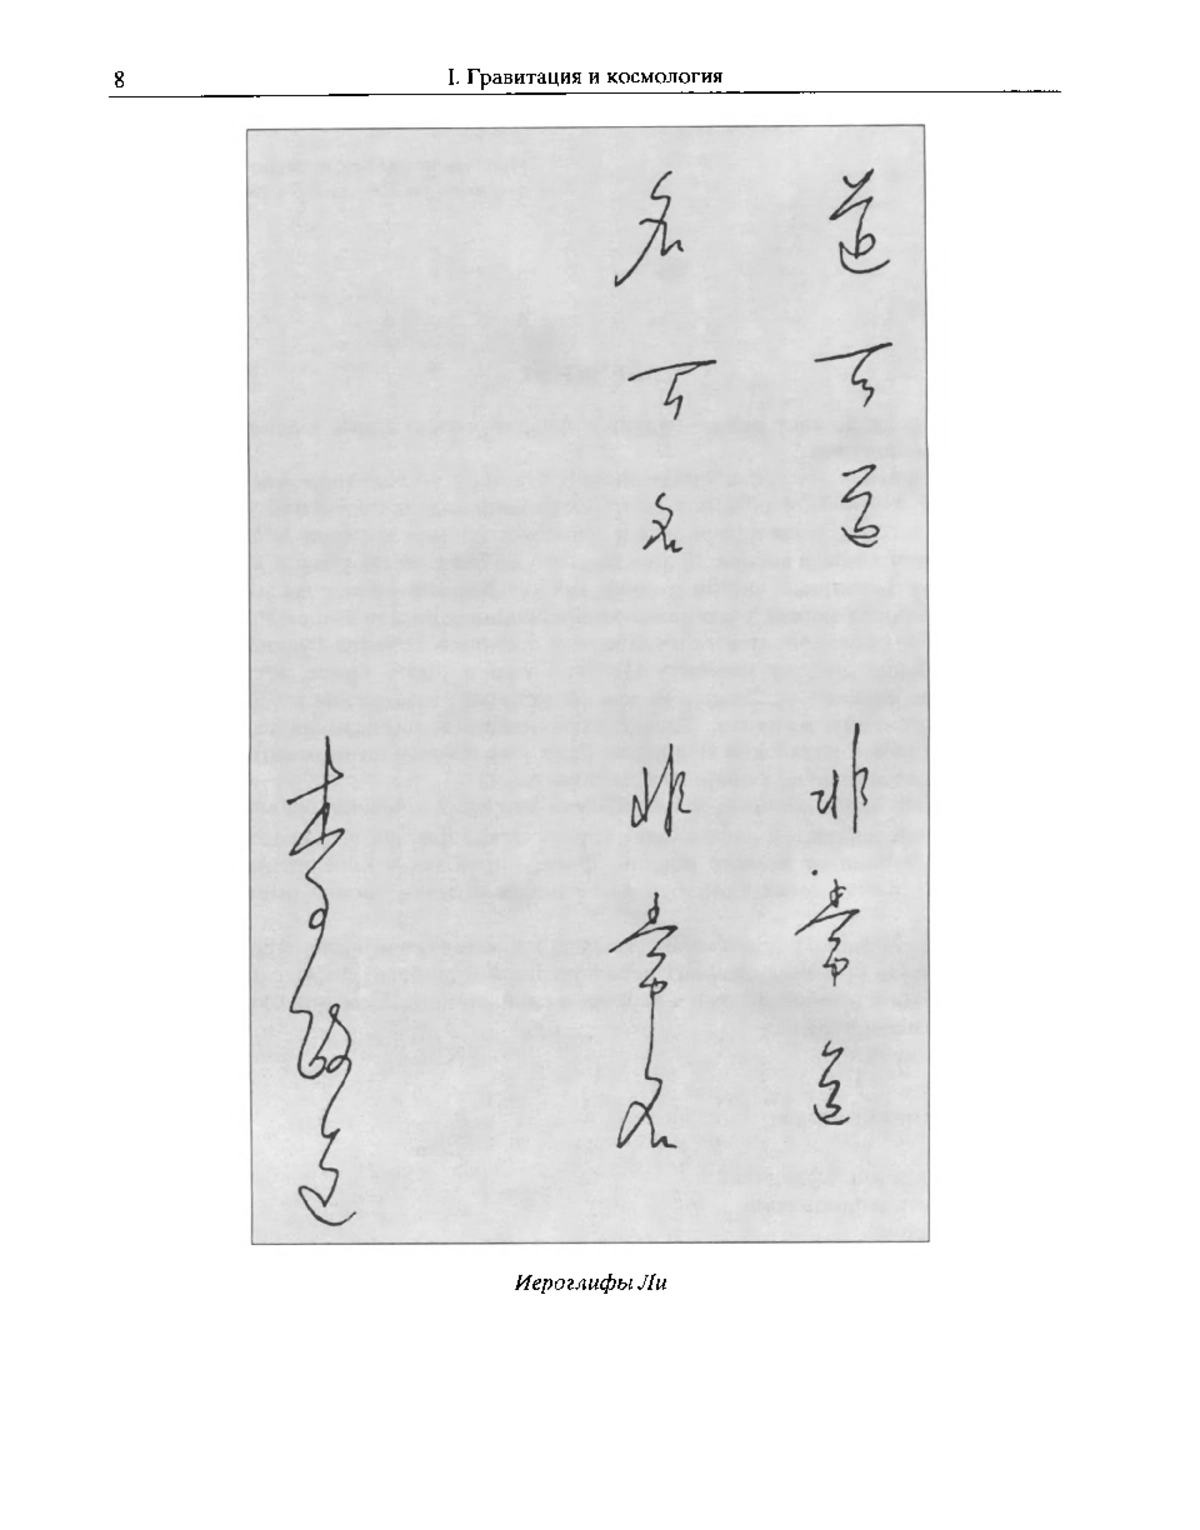 8
I. Гравитация и космология
道可道 非常道
名可名 非常名
李政道
Иероглифы Ли